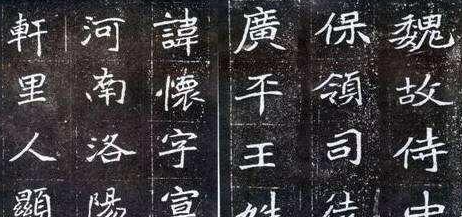 魏故侍中
保領司徒
廣平王姓
諱懷字宣
河南洛陽
軒里人顯